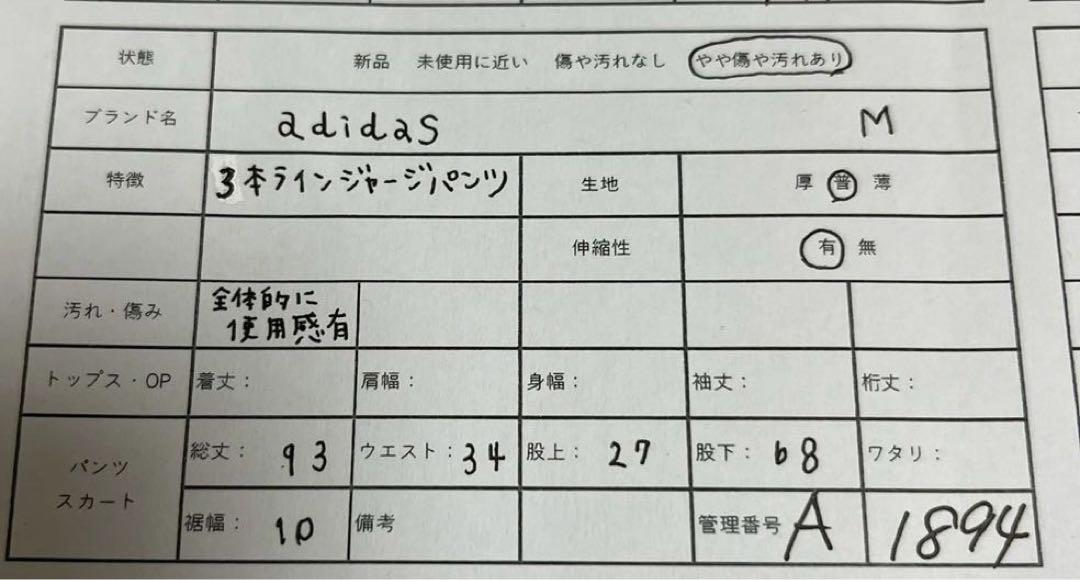 状態 新品 未使用に近い 傷や汚れなし やや傷や汚れあり
ブランド名 adidas M
特徴 3本ラインジャージパンツ 生地 厚 普 薄
伸縮性 有 無
汚れ・傷み 全体的に
使用感有
トップス・OP 着丈： 肩幅： 身幅： 袖丈： 裄丈：
パンツ
スカート
総丈： 93 ウエスト： 34 股上： 27 股下： 68 ワタリ：
裾幅： 10 備考 管理番号 A 1894